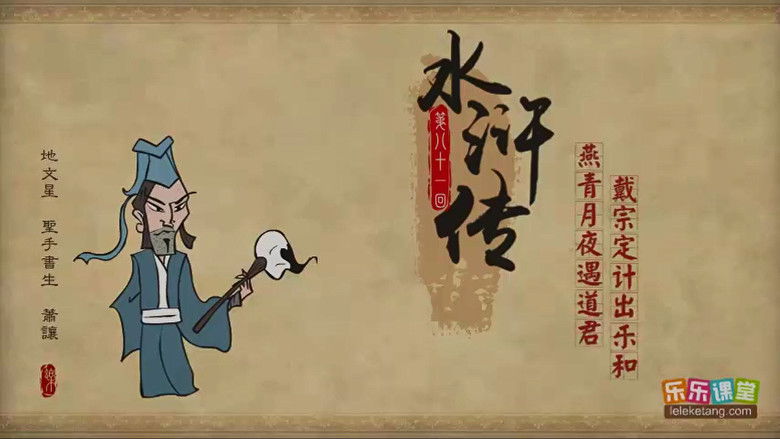 水浒传
第八十一回
燕青月夜遇道君
戴宗定计出乐和
地文星 聖手書生 蕭讓
乐乐课堂
leleketang.com